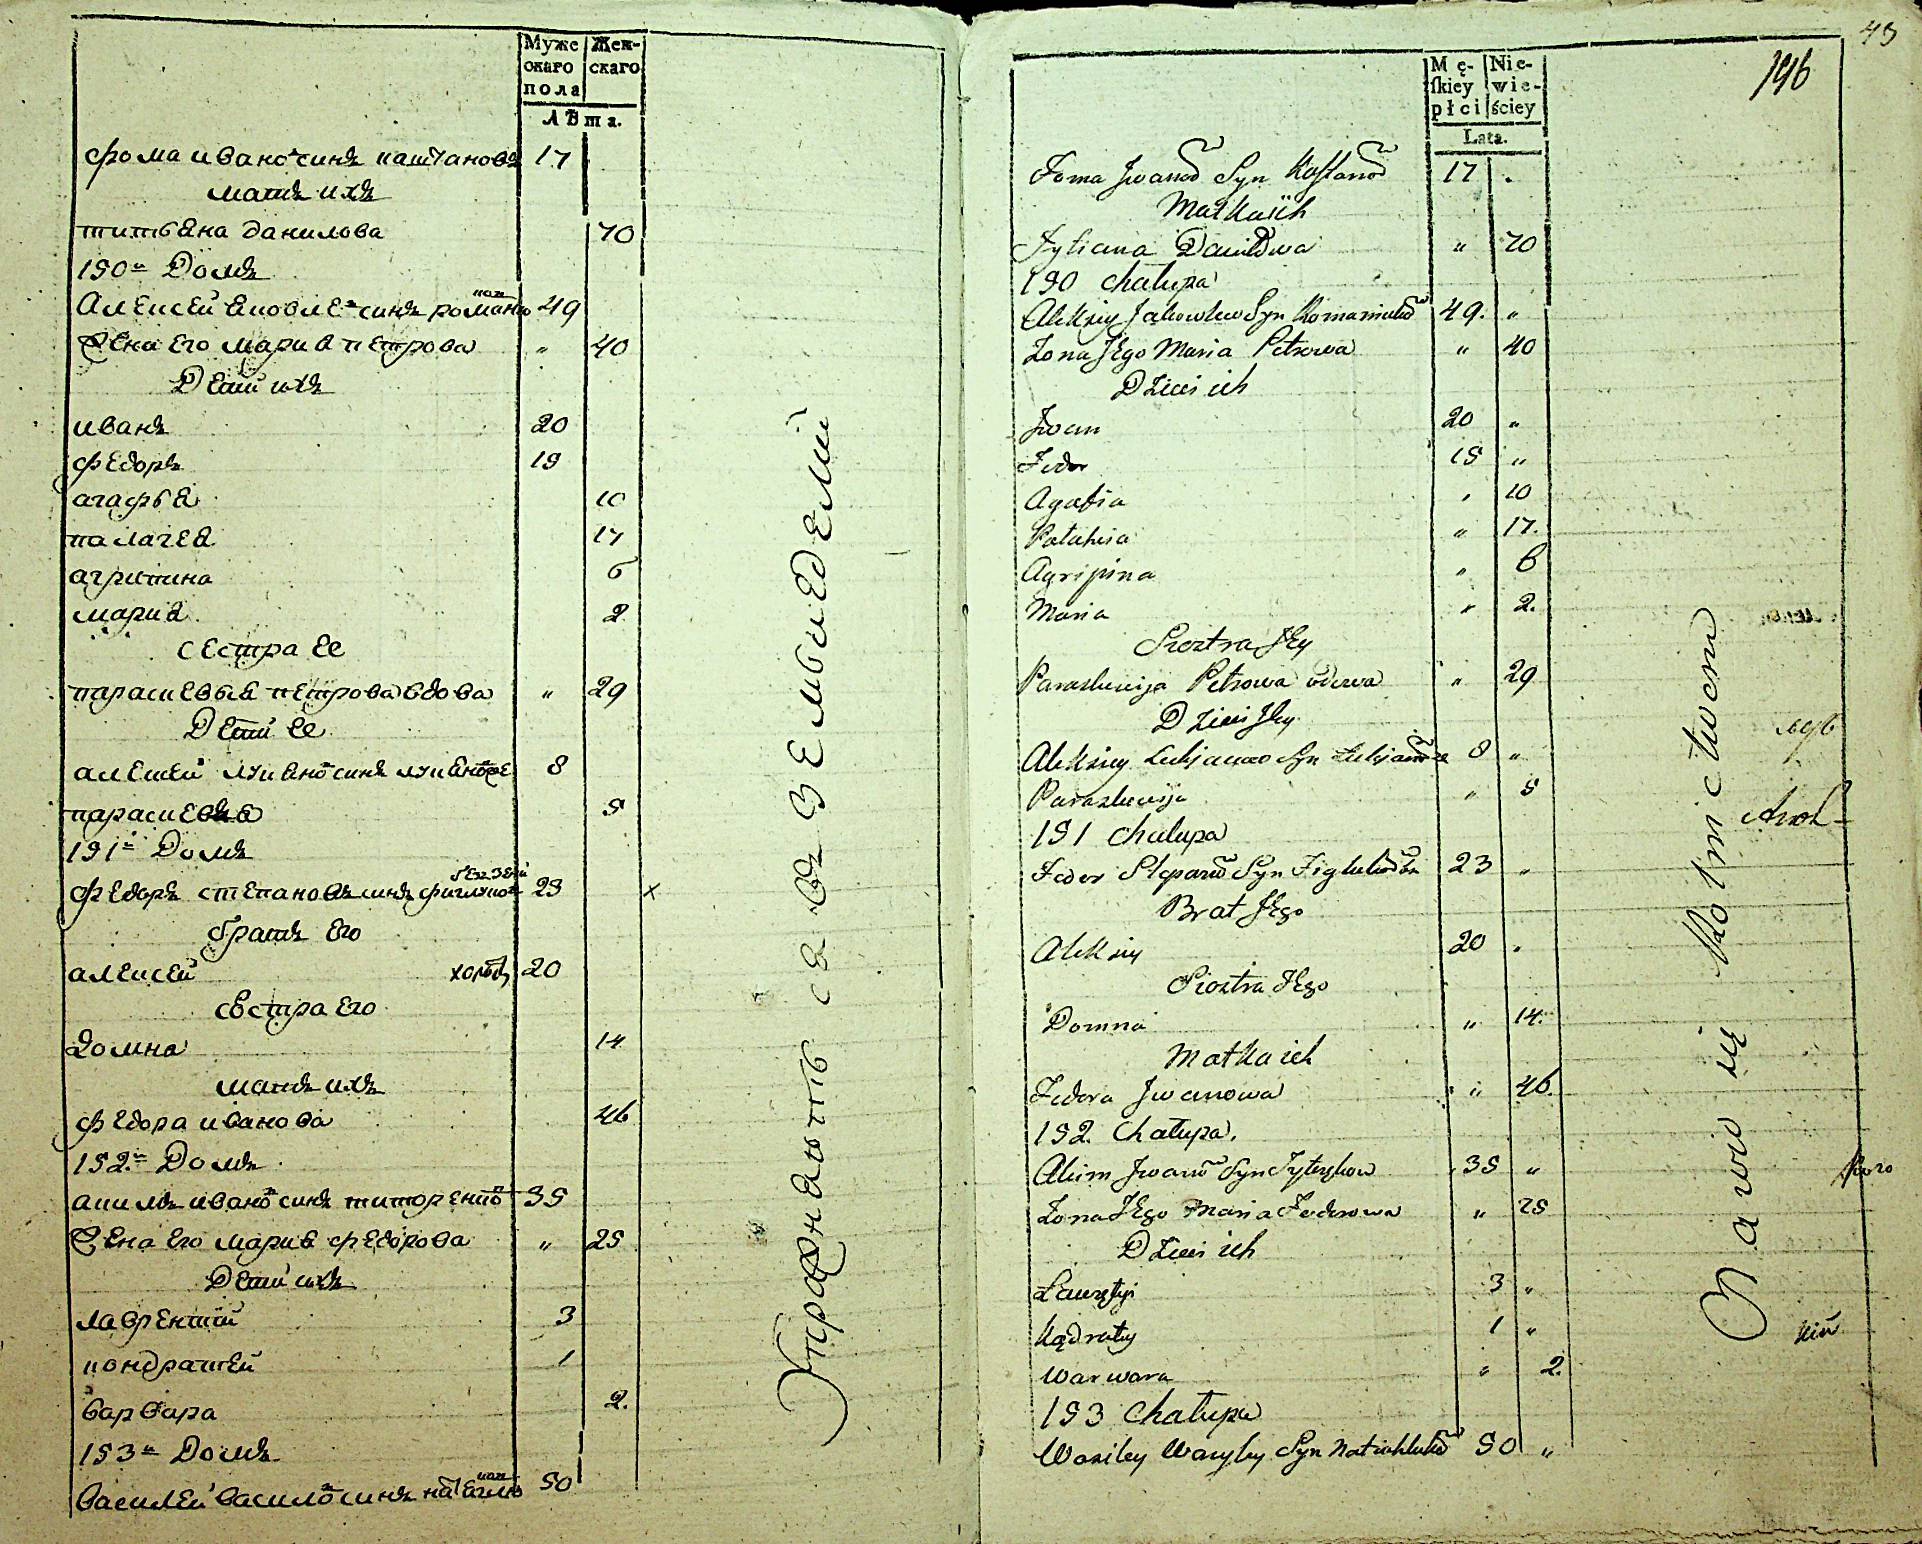 Муже
скаго
пола
Жен-
скаго
Лѣта.
фома ивано синъ каштанова 17
матъ ихъ
титьяна данилова 70
150й Домъ
Алексей яковле синъ романю 49
жена его мария петрова " 40
Дети ихъ
иванъ 20
федоръ 15
агафья 10
палагея 17
агрипина 6
мария 2
сестра ее
параскевья петрова вдова " 29
Дети ее
алексей лукяно синъ 8
параскевья 5
151й Домъ
федоръ степановъ синъ 23 x
братъ его
алексей холость 20
сестра его
домна 14
матъ ихъ
федора иванова 46
152й Домъ
акимъ ивано синъ титоренко 35
жена его мария федорова " 25
Дети ихъ
лаврентий 3
кондратей 1
варвара 2.
153й Домъ
василей василе синъ 50
Упражняють ся въ Земледелии
45
146
Mę-
ſkiey
płci
Nie-
wie-
ściey
Lata.
Foma Jwanow Syn Kasztanow 17 .
Matka ich
Tytiana Daniłowa " 70
150 chałupa
Alekśiey Jakowlew Syn Romaniukow 49. "
Żona Jego Maria Petrowa " 40
Dzieci ich
Jwan 20 "
Fedor 15 "
Agafia " 10
Pałahia " 17.
Agripina " 6
Maria " 2.
Siostra Jey
Paraskewija Petrowa wdowa " 29
Dzieci Jey
Alekśiey Łukjanow Syn 8 "
Paraskewija " 5
151 chałupa
Fedor Stepanow Syn 23 "
Brat Jego
Alekśiey 20 .
Siostra Jego
Domna " 14.
Matka ich
Fedora Jwanowa " 46.
152. Chałupa.
Akim Jwanow Syn 35 "
Żona Jego Maria Fedorowa " 25
Dzieci ich
Ławręty 3 "
Kądraty 1 "
Warwara " 2.
153 Chałupa
Wasiley Wasyley Syn 50 "
Bawią się Rolnictwem